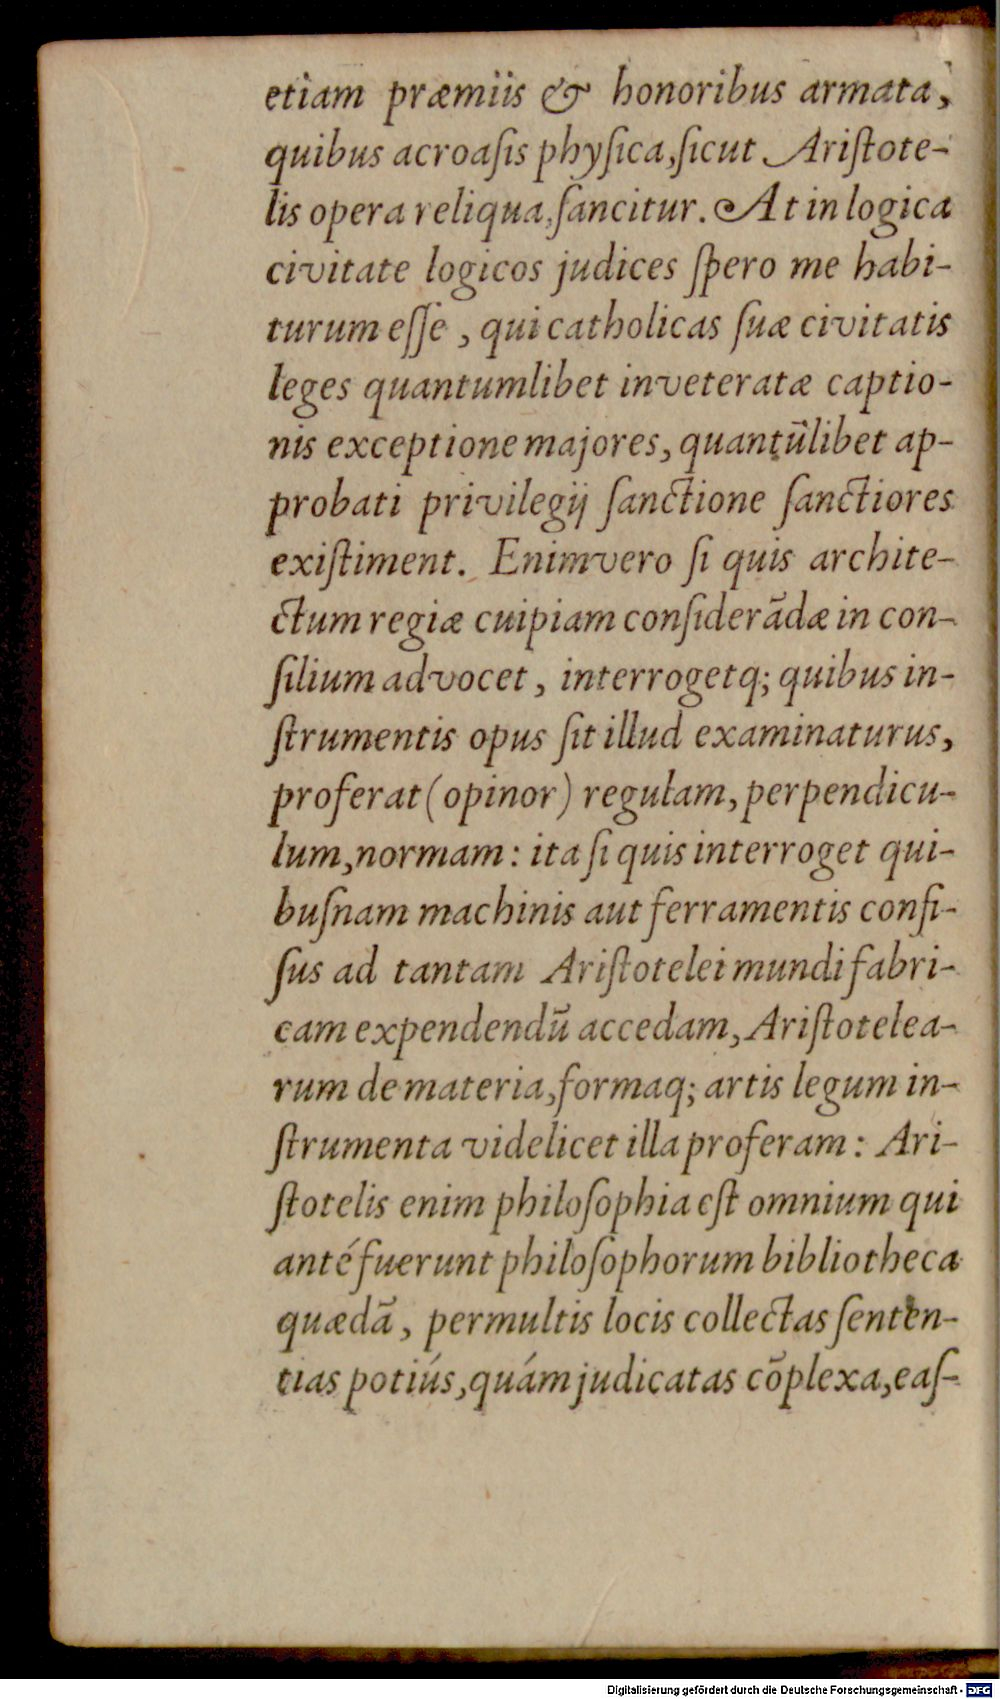 etiam præmiis & honoribus armata,
quibus acroaſis phyſica, ſicut Ariſtote-
lis opera reliqua, ſancitur. At in logica
civitate logicos judices ſpero me habi-
turum eſſe, qui catholicas ſuæ civitatis
leges quantumlibet inveteratæ captio-
nis exceptione majores, quantũlibet ap-
probati privilegij ſanctione ſanctiores
exiſtiment. Enimvero ſi quis archite-
ctum regiæ cuipiam conſiderãdæ in con-
ſilium advocet, interrogetq; quibus in-
ſtrumentis opus ſit illud examinaturus,
proferat (opinor) regulam, perpendicu-
lum, normam: ita ſi quis interroget qui-
buſnam machinis aut ferramentis confi-
ſus ad tantam Ariſtotelei mundi fabri-
cam expendendũ accedam, Ariſtotelea-
rum de materia, formaq; artis legum in-
ſtrumenta videlicet illa proferam: Ari-
ſtotelis enim philoſophia eſt omnium qui
anté fuerunt philoſophorum bibliotheca
quædã, permultis locis collectas ſenten-
tias potiús, quám judicatas cõplexa, eaſ-
Digitalisierung gefördert durch die Deutsche Forschungsgemeinschaft - DFG